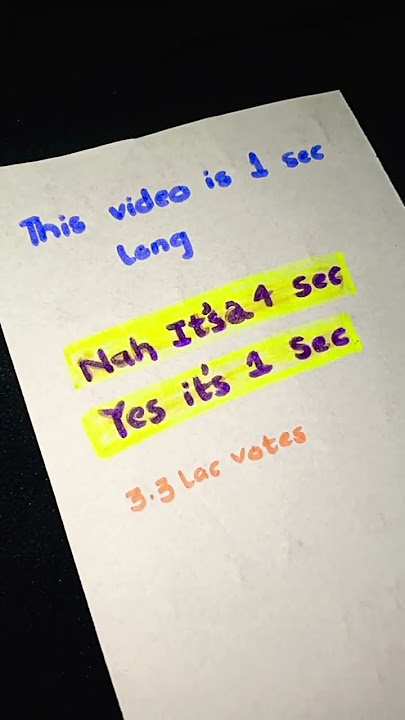 This video is 1 sec
long
Nah It's a 4 sec
Yes it's 1 sec
3.3 Lac votes